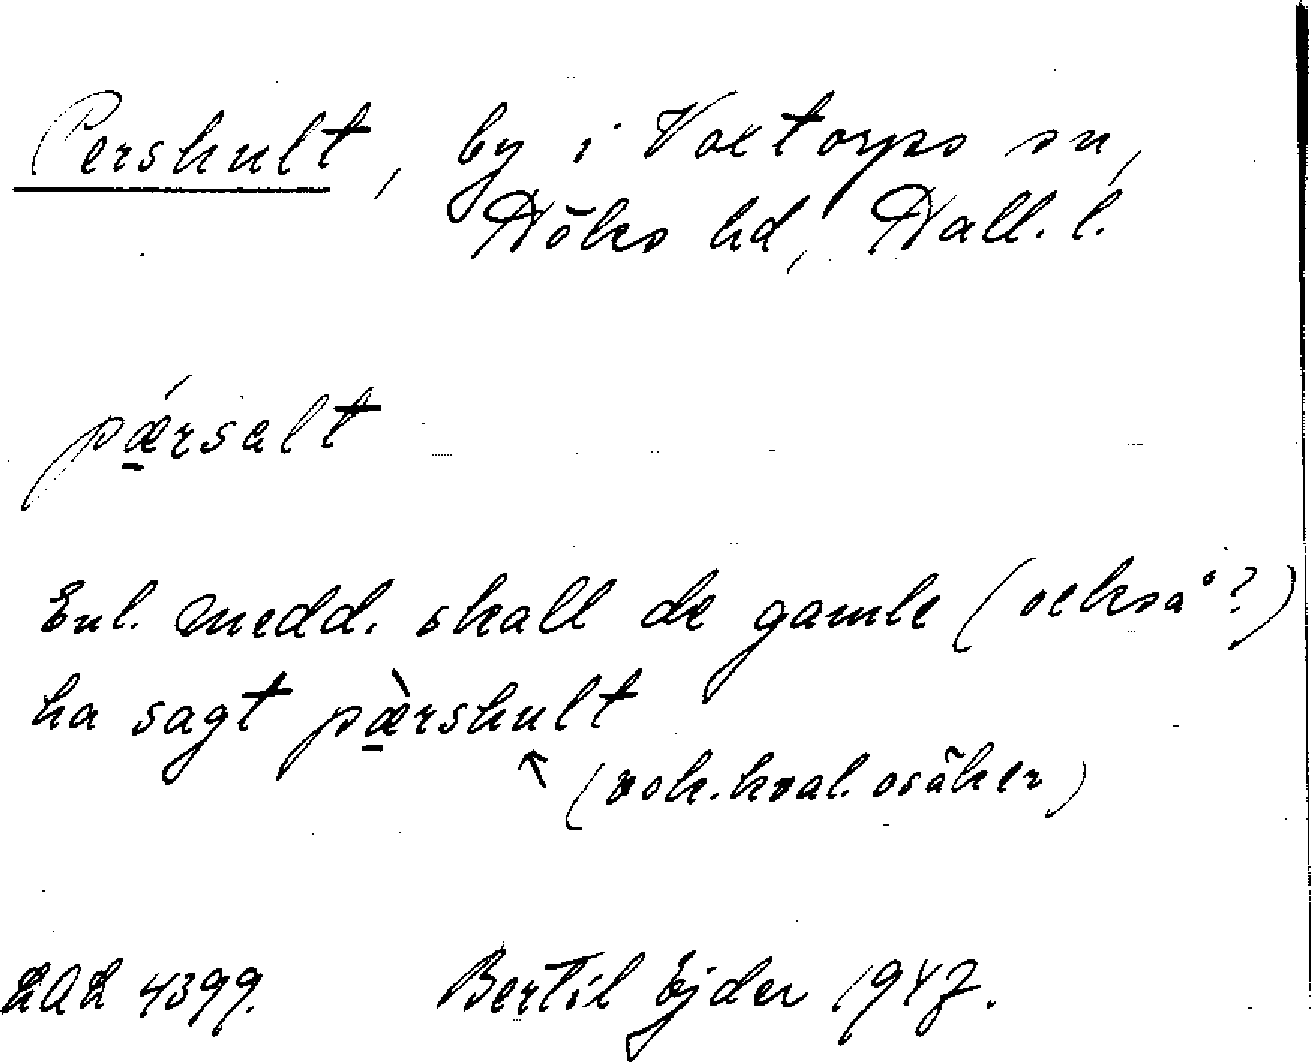 Pershult, by i Voxtorps sn,
Höks hd, Hall. l.
pǽrsalt
Enl. medd. skall de gamle (också?)
ha sagt pæ̀rshult
(vok.kval. osäker)
LAL 4399. Bertil Ejder 1947.